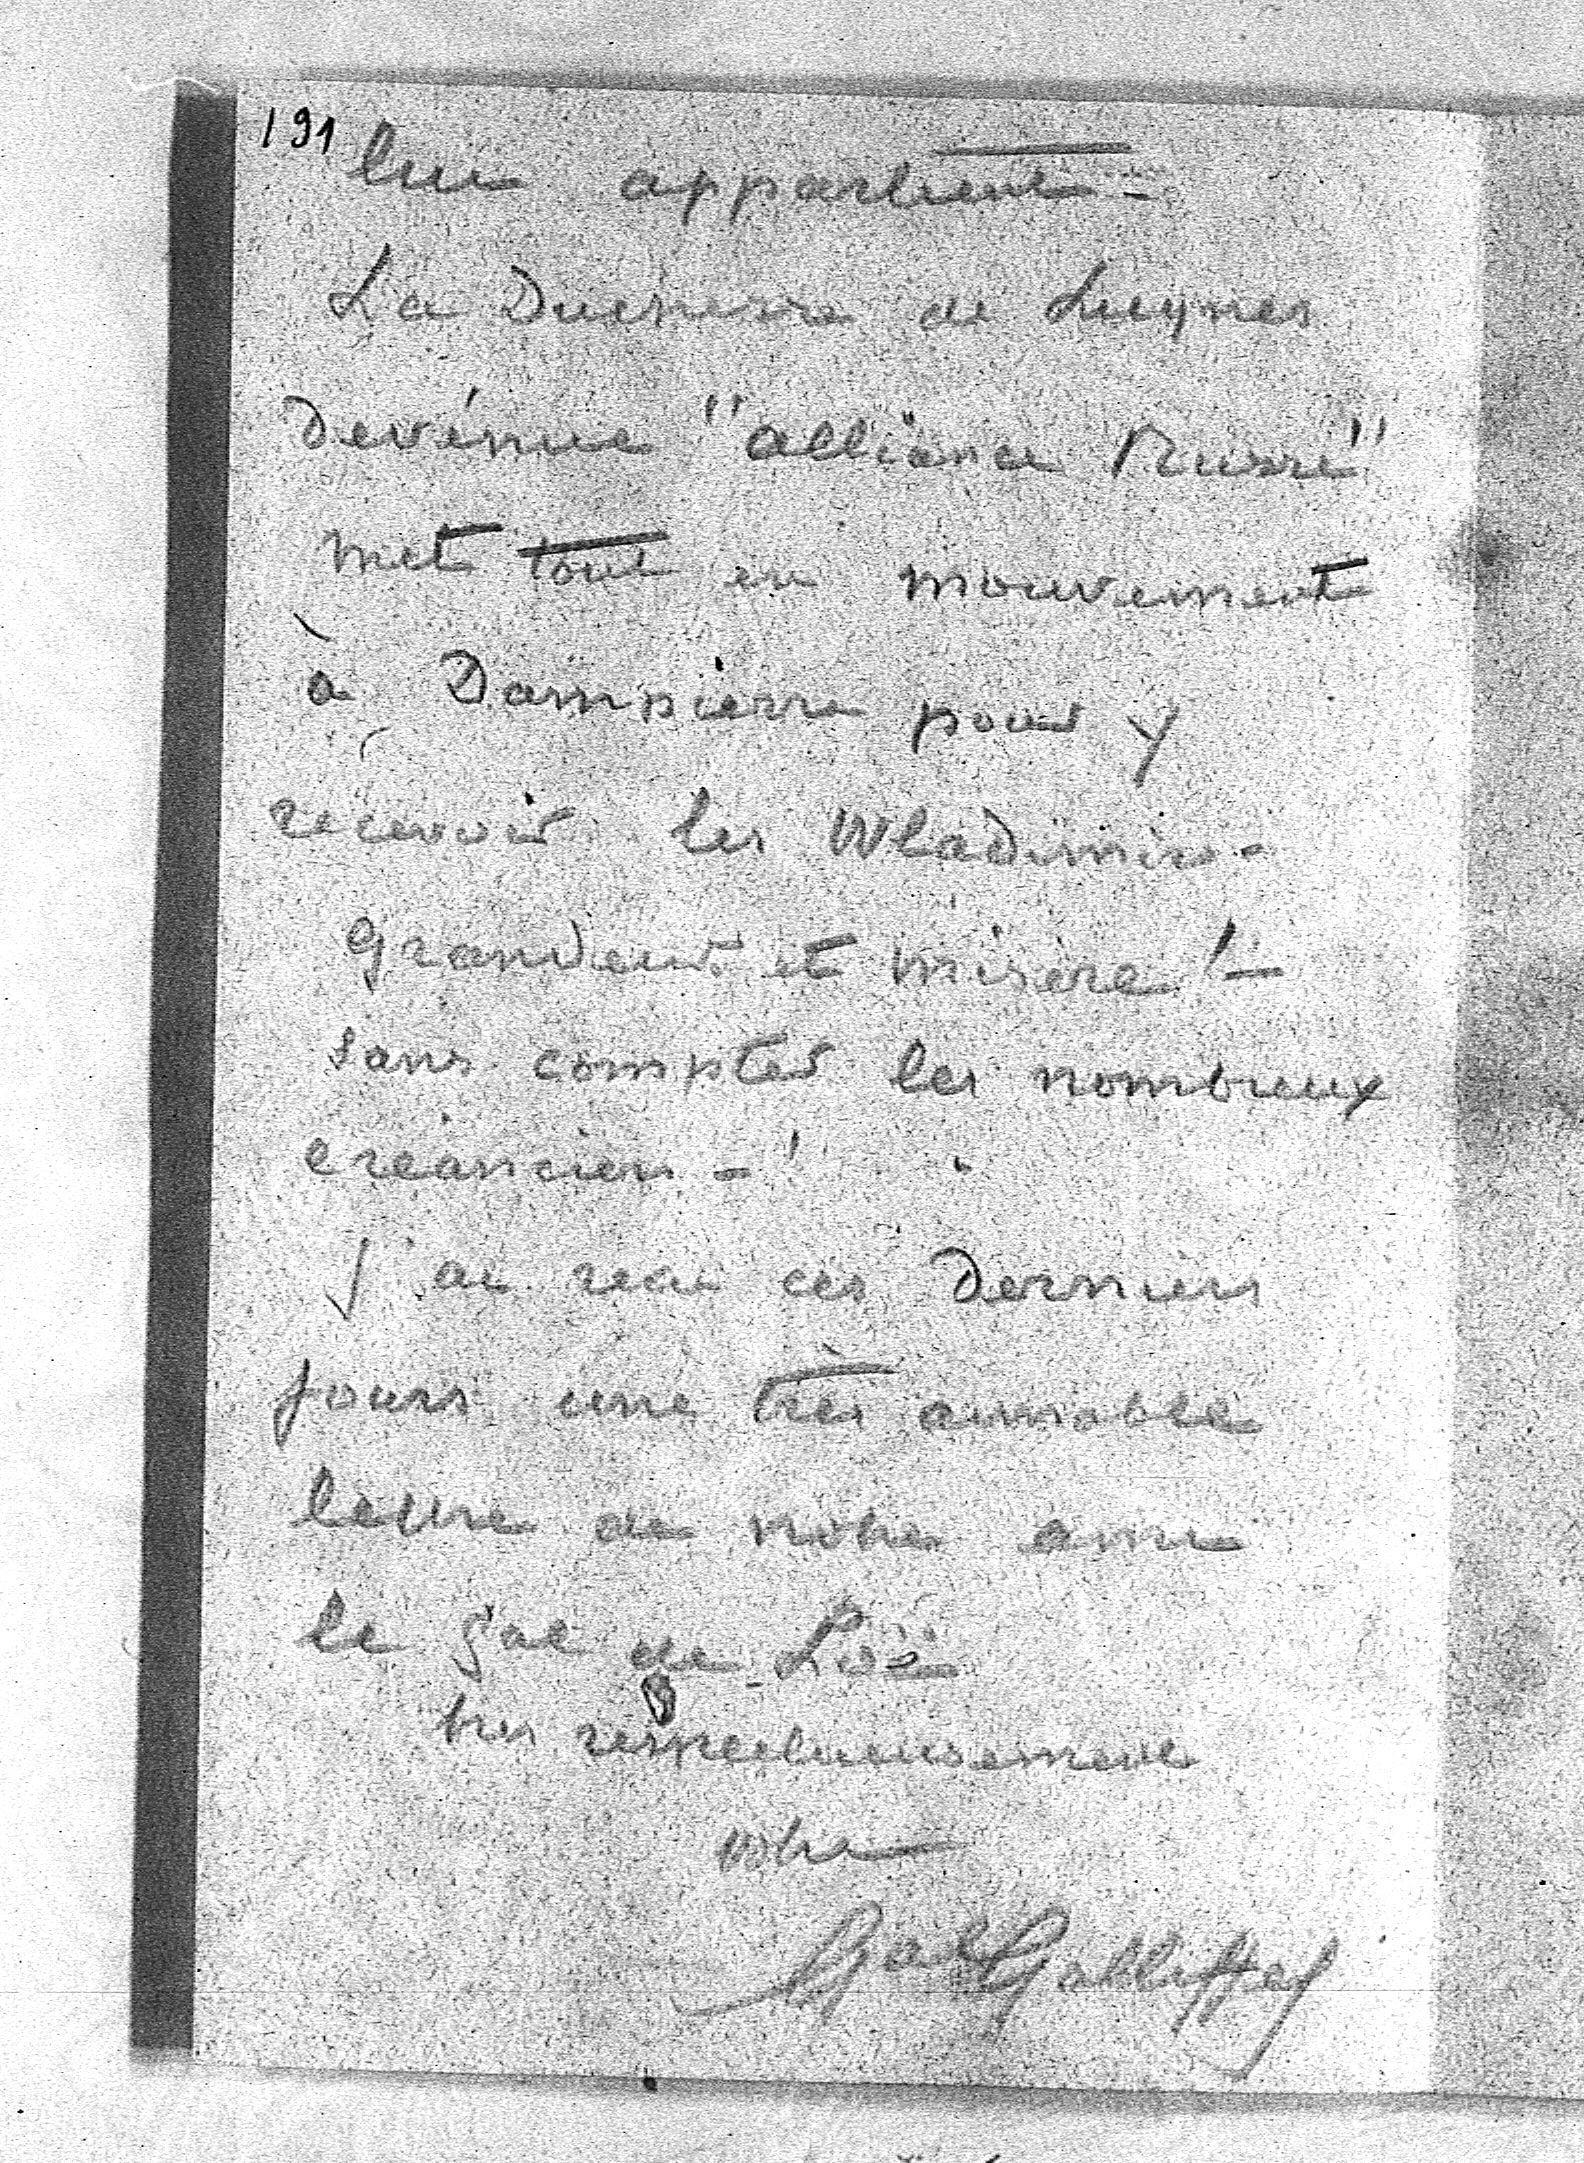 191
lui appartient -
La Duchesse de Luynes
Devénue "alliance Russe"
met tout en mouvement
à Dampierre pour y
récevoir les Wladimirs -
Grandeur et misère ! -
sans compter les nombreux
créanciers - !
J'ai recu ces Derniers
jours une très aimable
lettre de notre ami
le Gal de Loë
très respectueusement
votre
Gal Galliffet